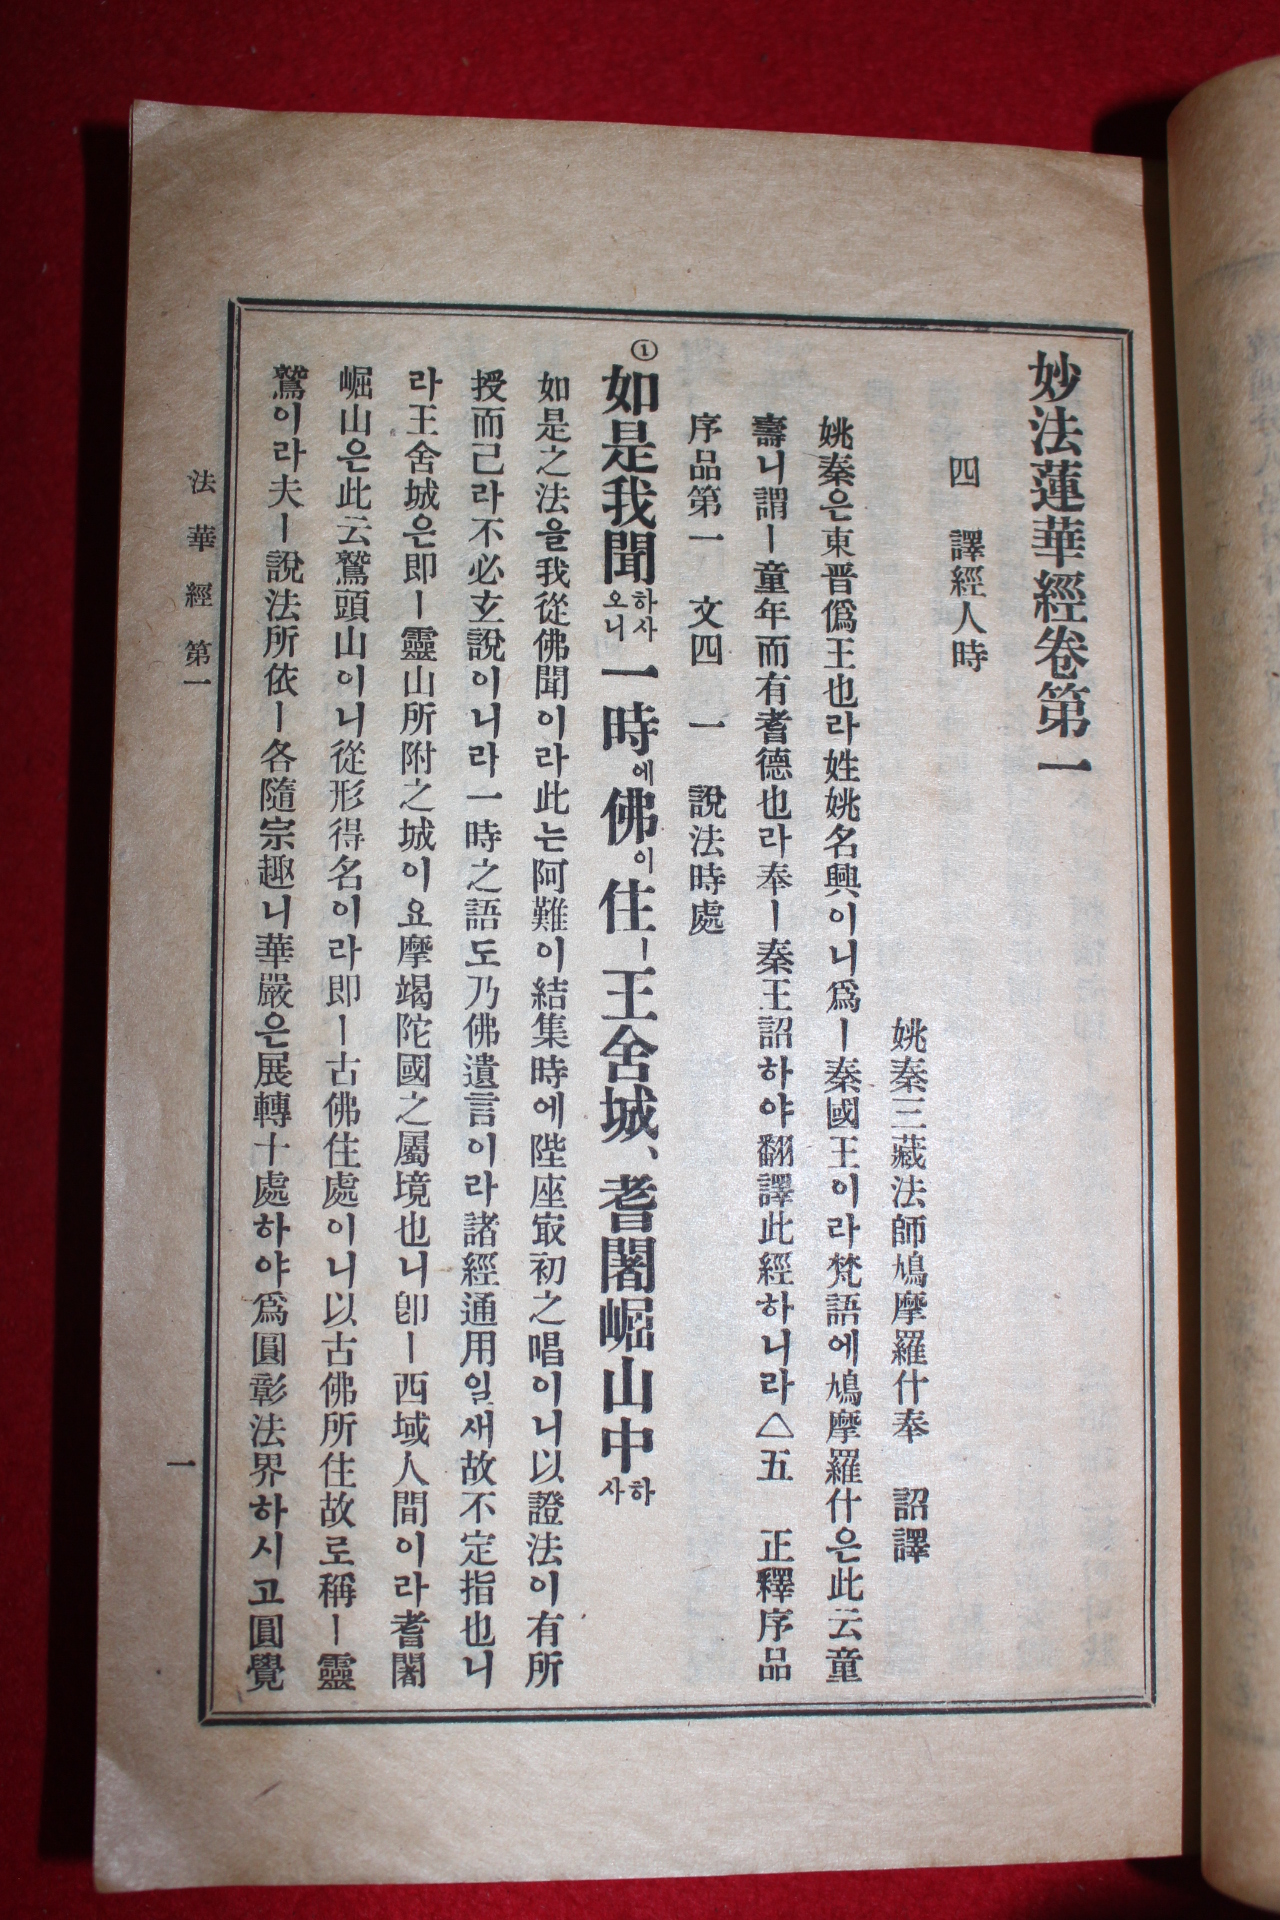 妙法蓮華經卷第一
四 譯經人時
姚秦三藏法師鳩摩羅什奉 詔譯
姚秦은東晋僞王也라姓姚名興이니爲ㅣ秦國王이라梵語에鳩摩羅什은此云童
壽니謂ㅣ童年而有耆德也라奉ㅣ秦王詔하야翻譯此經하니라△五 正釋序品
序品第一 文四 一 說法時處
①
如是我聞하사오니一時에佛이住ㅣ王舍城、耆闍崛山中하사
如是之法을我從佛聞이라此는阿難이結集時에陞座㝡初之唱이니以證法이有所
授而己라不必玄說이니라一時之語도乃佛遺言이라諸經通用일새故不定指也니
라王舍城은即ㅣ靈山所附之城이요摩竭陀國之屬境也니卽ㅣ西域人間이라耆闍
崛山은此云鷲頭山이니從形得名이라即ㅣ古佛住處이니以古佛所住故로稱ㅣ靈
鷲이라夫ㅣ說法所依ㅣ各隨宗趣니華嚴은展轉十處하야爲圓彰法界하시고圓覺
法華經 第一
一